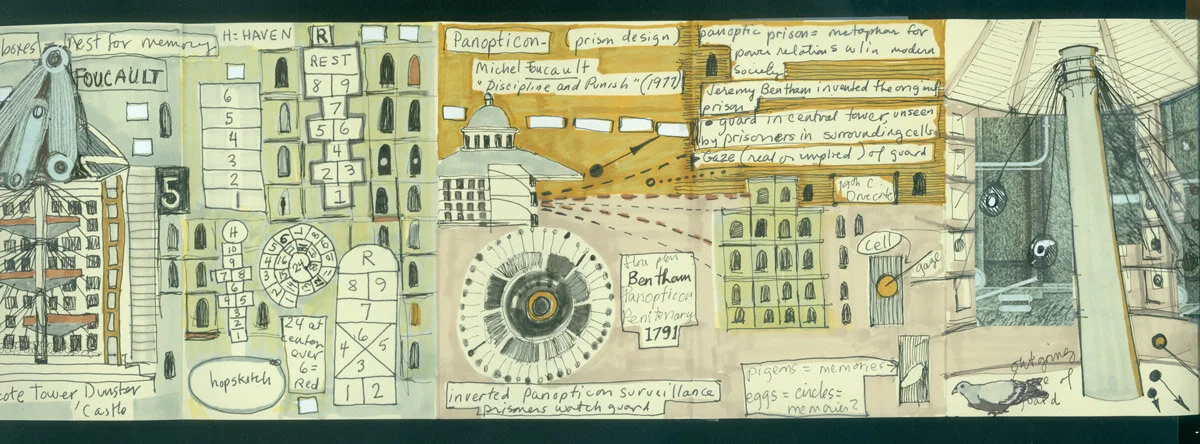 boxes
nest for memory
FOUCAULT
5
cote Tower Dunster
Castle
H = HAVEN
6
5
4
3
2
1
R
REST
8 9
7
5 6
4
2 3
1
H
10
9
7 8
6
4 5
3
2
1
24
R
8 9
7
6
4 5
3
1 2
24 at
center
over
6 =
Red
hopsketch
Panopticon-
prism design
Michel Foucault
"Discipline and Punish" (1977)
panoptic prison = metaphor for
power relations w/in modern
society
Jeremy Bentham invented the original
prison
guard in central tower, unseen
by prisoners in surrounding cells
Gaze (real or implied) of guard
19th C.
Bentham
Panopticon
Penitenary
1791
inverted panopticon surveillance
prisoners watch guard
cell
gaze
pigeons = memories
eggs = circles =
memories?
outgoing
of
guard